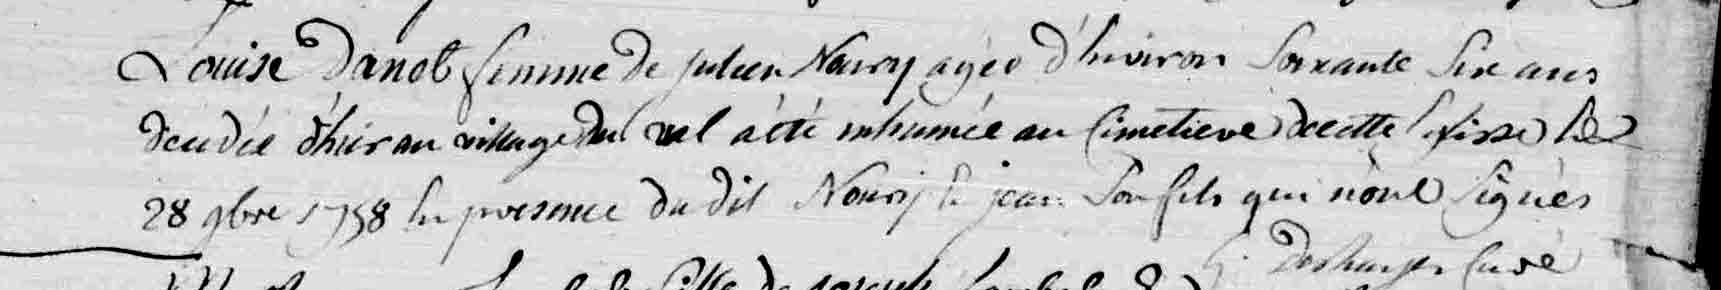 Louise Danob femme de julien Noury agée d'huviron soixante six ans
décédée d'hier au village du val a été inhumée au Cimetiere de cette Eglise le
28 9bre 1758 En presence du dit Noury & jean Son fils qui n'ont Signés
Curé